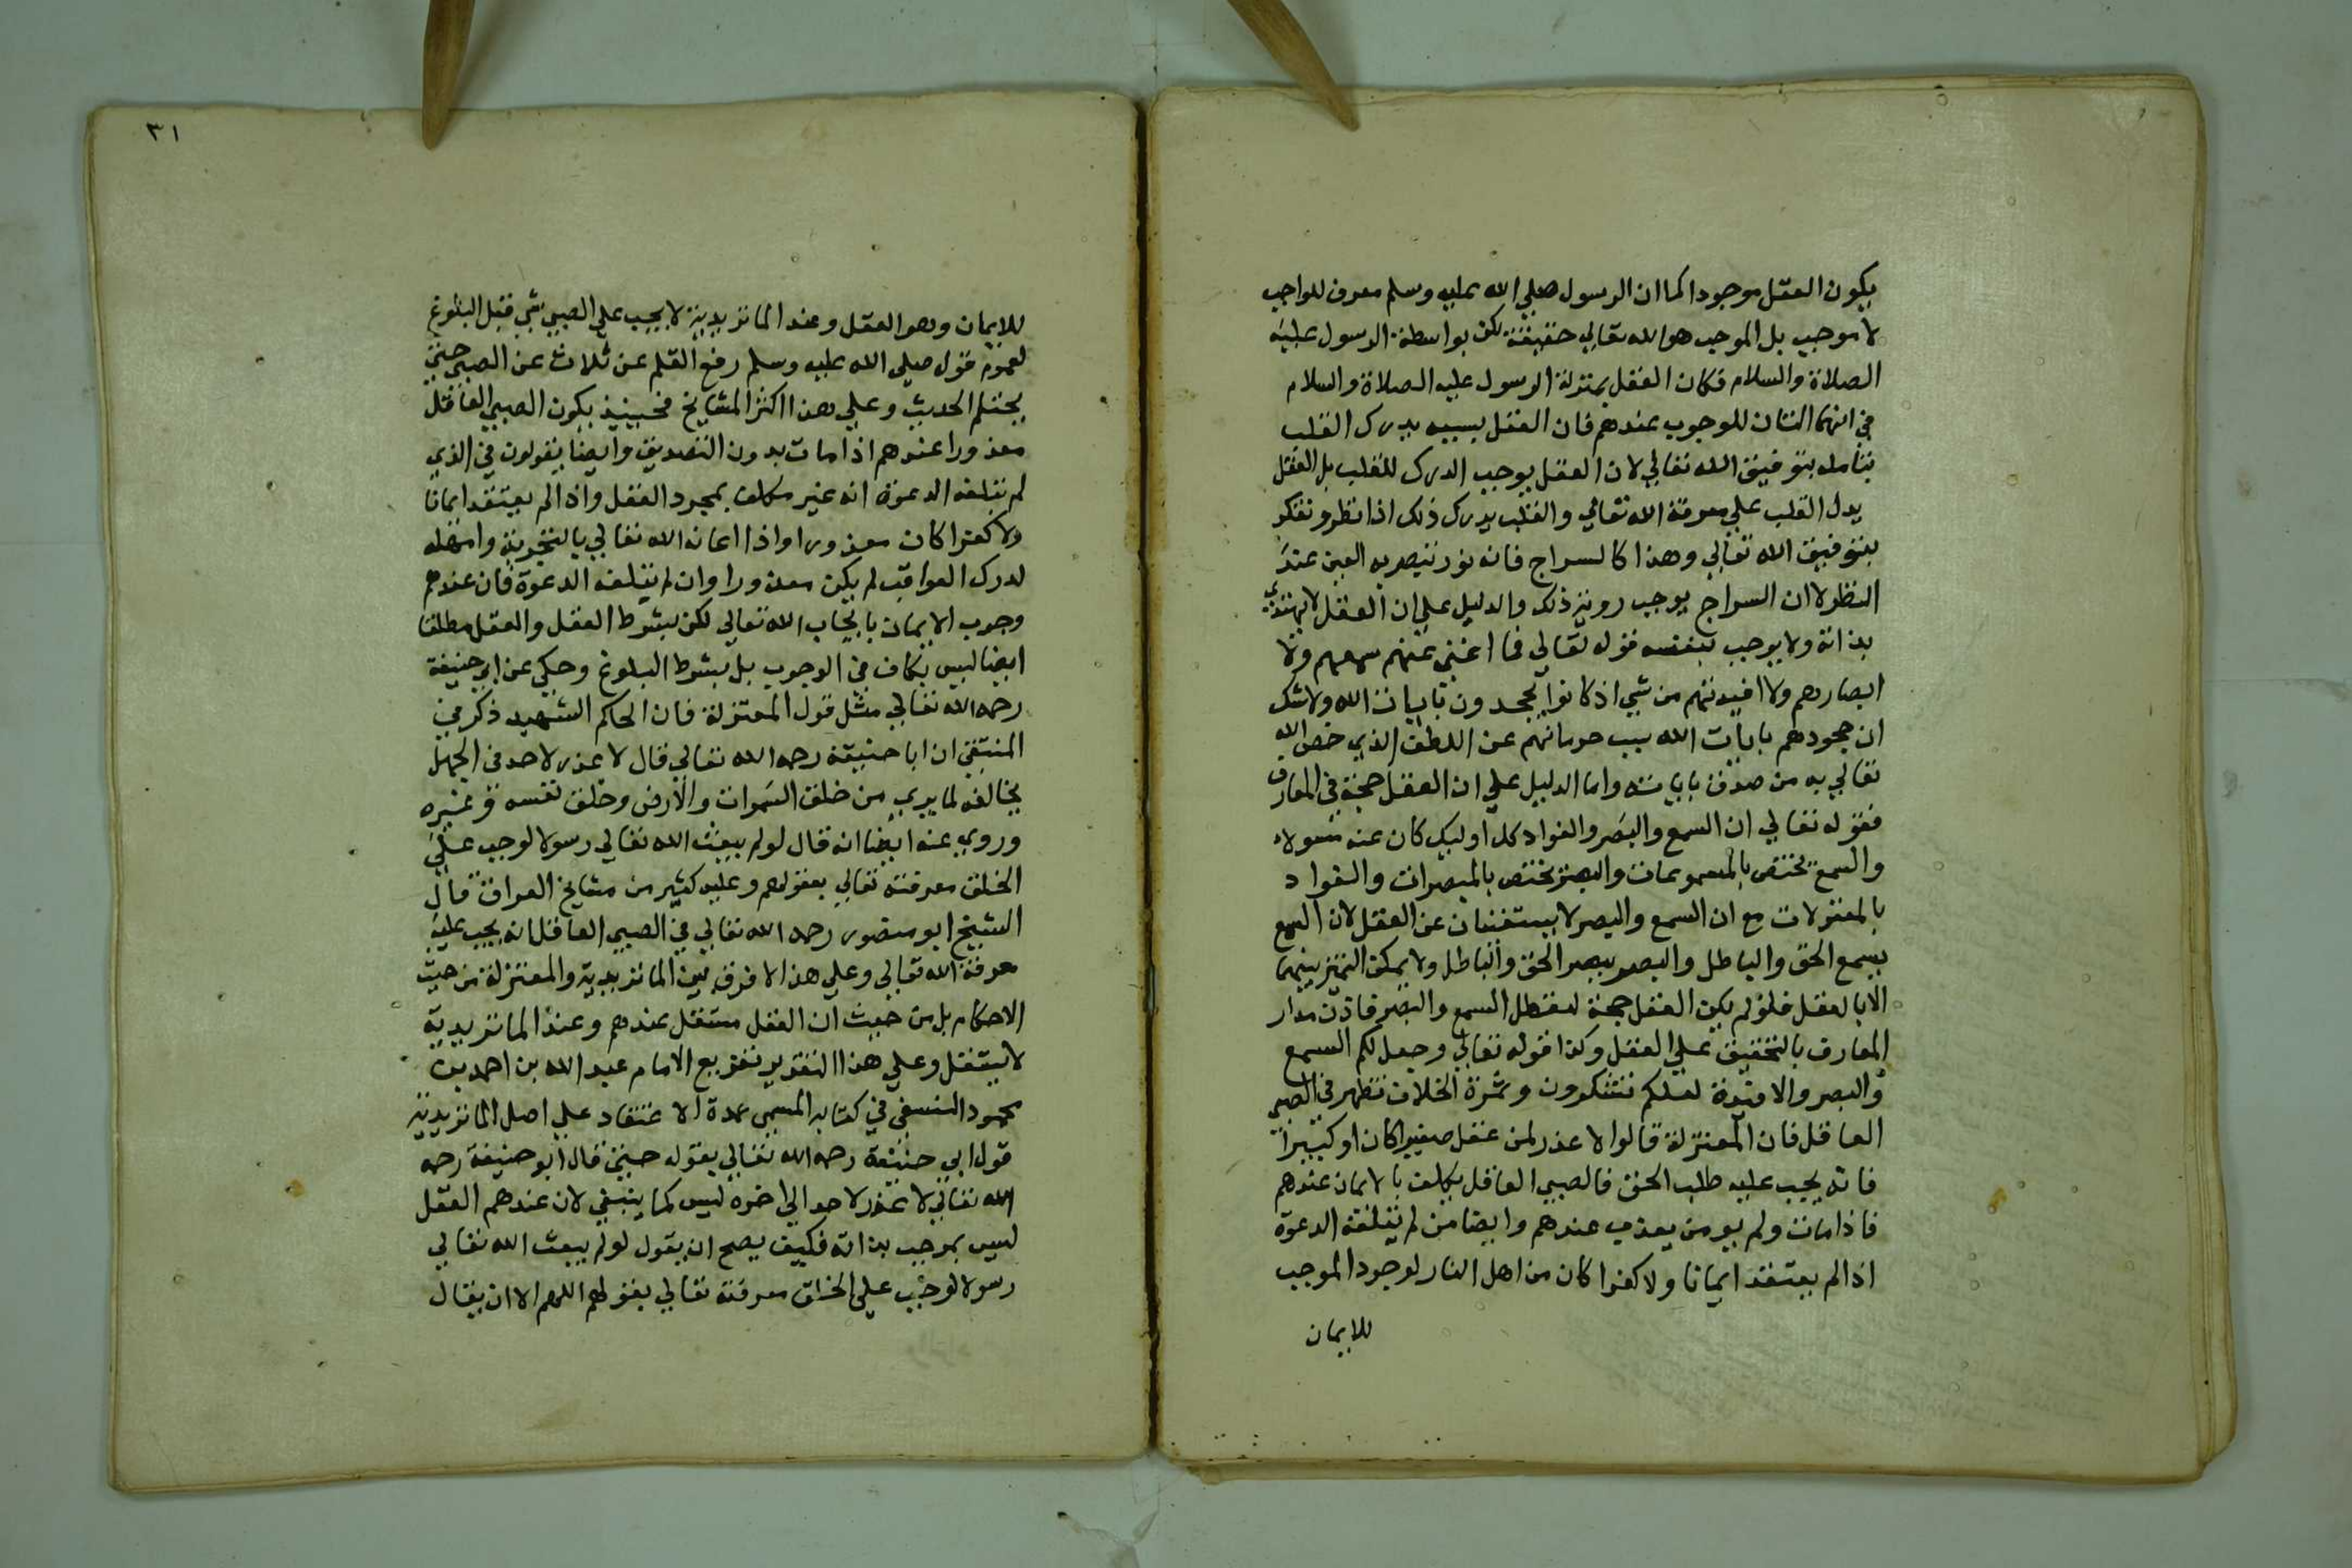 يكون العقل موجودا كما ان الرسول صلي الله عليه وسلم معرف للواجب
لا موجب بل الموجب هو الله تعالي حقيقة لكن بواسطة الرسول عليه
الصلاة والسلام فكان العقل بمنزلة الرسول عليه الصلاة والسلام
في انهما التان للوجوب عندهم فان العقل بسببه يدرك القلب
بتامله بتوفيق الله تعالي لان العقل يوجب الدرك للقلب بل العقل
يدل القلب علي معرفة الله تعالي والقلب يدرك ذلك اذا نظر وتفكر
بتوفيق الله تعالي وهذا كالسراج فانه نور تبصر به العين عند
النظر لا ان السراج يوجب روية ذلك والدليل علي ان العقل لا يهتدي
بذاته ولا يوجب بنفسه قوله تعالي فما اغني عنهم سمعهم ولا
ابصارهم ولا افيدتهم من شي اذ كانوا يجحدون بايات الله ولا شك
ان جحودهم بايات الله سبب حرمانهم عن اللطف الذي خص الله
تعالي به من صدق باياته واما الدليل علي ان العقل حجة في المعارف
فقوله تعالي ان السمع والبصر والفواد كل اوليك كان عنه مسولا
والسمع تختص بالمسموعات والبصر تختص بالمبصرات والفواد
بالمعقولات مع ان السمع والبصر لا يستغنيان عن العقل لان السمع
يسمع الحق والباطل والبصر يبصر الحق والباطل ولا يمكن التميز بينهما
الا بالعقل فلو لم يكن العقل حجة لتعطل السمع والبصر فاذن مدار
المعارف بالتحقيق علي العقل وكذا قوله تعالي وجعل لكم السمع
والبصر والافيدة لعلكم تتفكرون وثمرة الخلاف تظهر في الصبي
العاقل فان المعتزلة قالوا لا عذر لمن عقل صغيرا كان او كبيرا
فانه يجب عليه طلب الحق فالصبي العاقل يكلف بالايمان عندهم
فاذا مات ولم يومن يعذب عندهم وايضا من لم تبلغه الدعوة
اذا لم يعتقد ايمانا ولا كفرا كان من اهل النار لوجود الموجب
للايمان
٣١
للايمان وهو العقل وعند الماتريدية لا يجب علي الصبي شي قبل البلوغ
لعموم قوله صلي الله عليه وسلم رفع القلم عن ثلاث عن الصبي حتي
يحتلم الحديث وعلي هذا اكثر المشايخ فحينيذ يكون الصبي العاقل
معذورا عندهم اذا مات بدون التصديق وايضا يقولون في الذي
لم تبلغه الدعوة انه غير مكلف بمجرد العقل واذا لم يعتقد ايمانا
ولا كفرا كان معذورا واذا اعانه الله تعالي بالتجربة وامهله
لدرك العواقب لم يكن معذورا وان لم تبلغه الدعوة فان عندهم
وجوب الايمان بايجاب الله تعالي لكن بشرط العقل والعقل مطلقا
ايضا ليس بكاف في الوجوب بل بشرط البلوغ وحكي عن ابي حنيفة
رحمه الله تعالي مثل قول المعتزلة فان الحاكم الشهيد ذكر في
المنتقي ان ابا حنيفة رحمه الله تعالي قال لا عذر لاحد في الجهل
بخالقه لما يري من خلق السموات والارض وخلق نفسه وغيره
وروي عنه ايضا انه قال لو لم يبعث الله تعالي رسولا لوجب علي
الخلق معرفته تعالي بعقولهم وعليه كثير من مشايخ العراق قال
الشيخ ابو منصور رحمه الله تعالي في الصبي العاقل انه يجب عليه
معرفة الله تعالي وعلي هذا لا فرق بين الماتريدية والمعتزلة من حيث
الاحكام بل من حيث ان العقل مستقل عندهم وعند الماتريدية
لا يستقل وعلي هذا التقدير تفريع الامام عبد الله بن احمد بن
محمود النسفي في كتابه المسمي عمدة الاعتقاد علي اصل الماتريدية
قول ابي حنيفة رحمه الله تعالي بقوله حيث قال ابو حنيفة رحمه
الله تعالي لا عذر لاحد الي اخره ليس كما ينبغي لان عندهم العقل
ليس بموجب بذاته فكيف يصح ان يقول لو لم يبعث الله تعالي
رسولا لوجب علي الخلق معرفته تعالي بعقولهم اللهم الا ان يقال